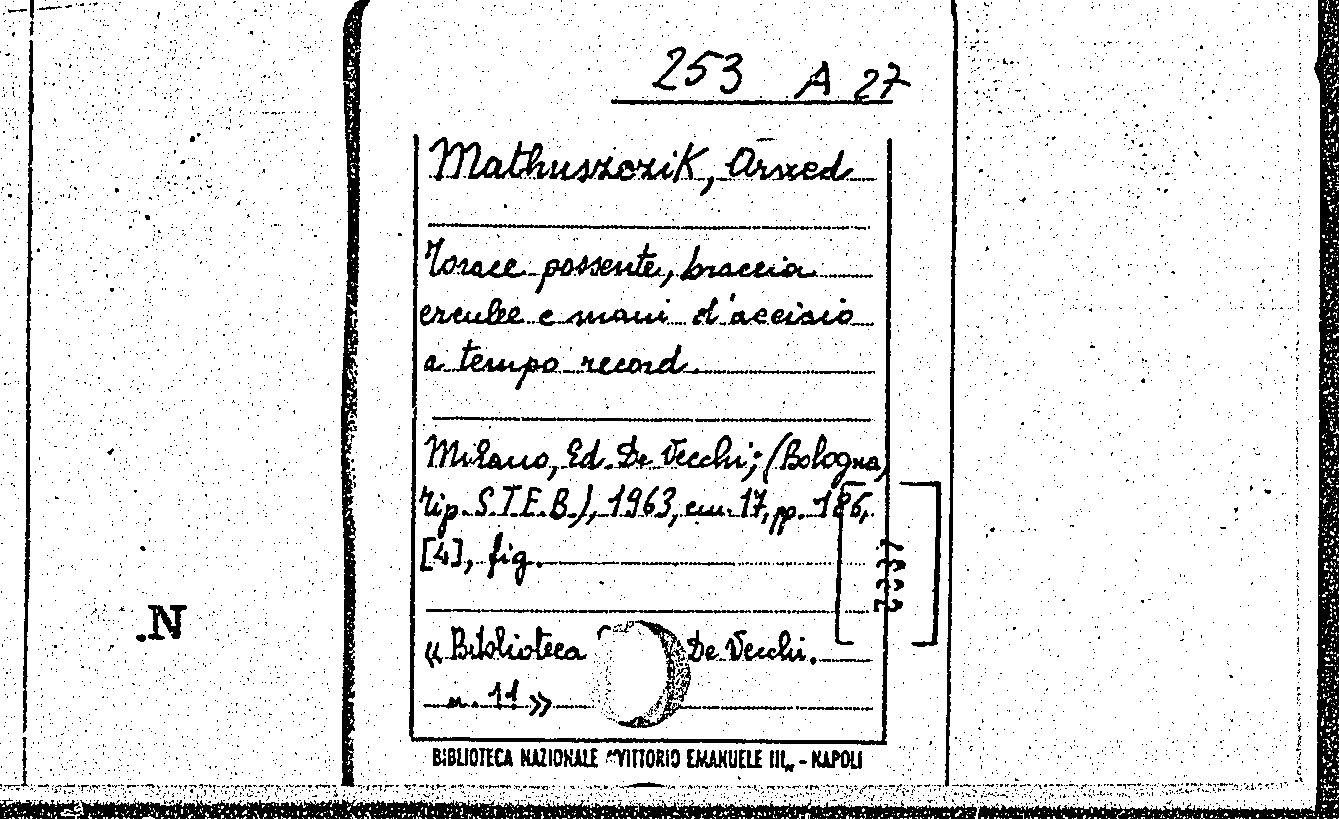 253 A 27
Mathuszozik,
Torace possente, braccia
erculee e mani d'acciaio
a tempo record.
Milano, Ed. De Vecchi; (Bologna,
tip. S.T.E.B.), 1963, cm. 17, pp. 186,
[4], fig.
« Biblioteca De Vecchi.
n. 11 »
BIBLIOTECA NAZIONALE "VITTORIO EMANUELE III„ - NAPOLI
N.